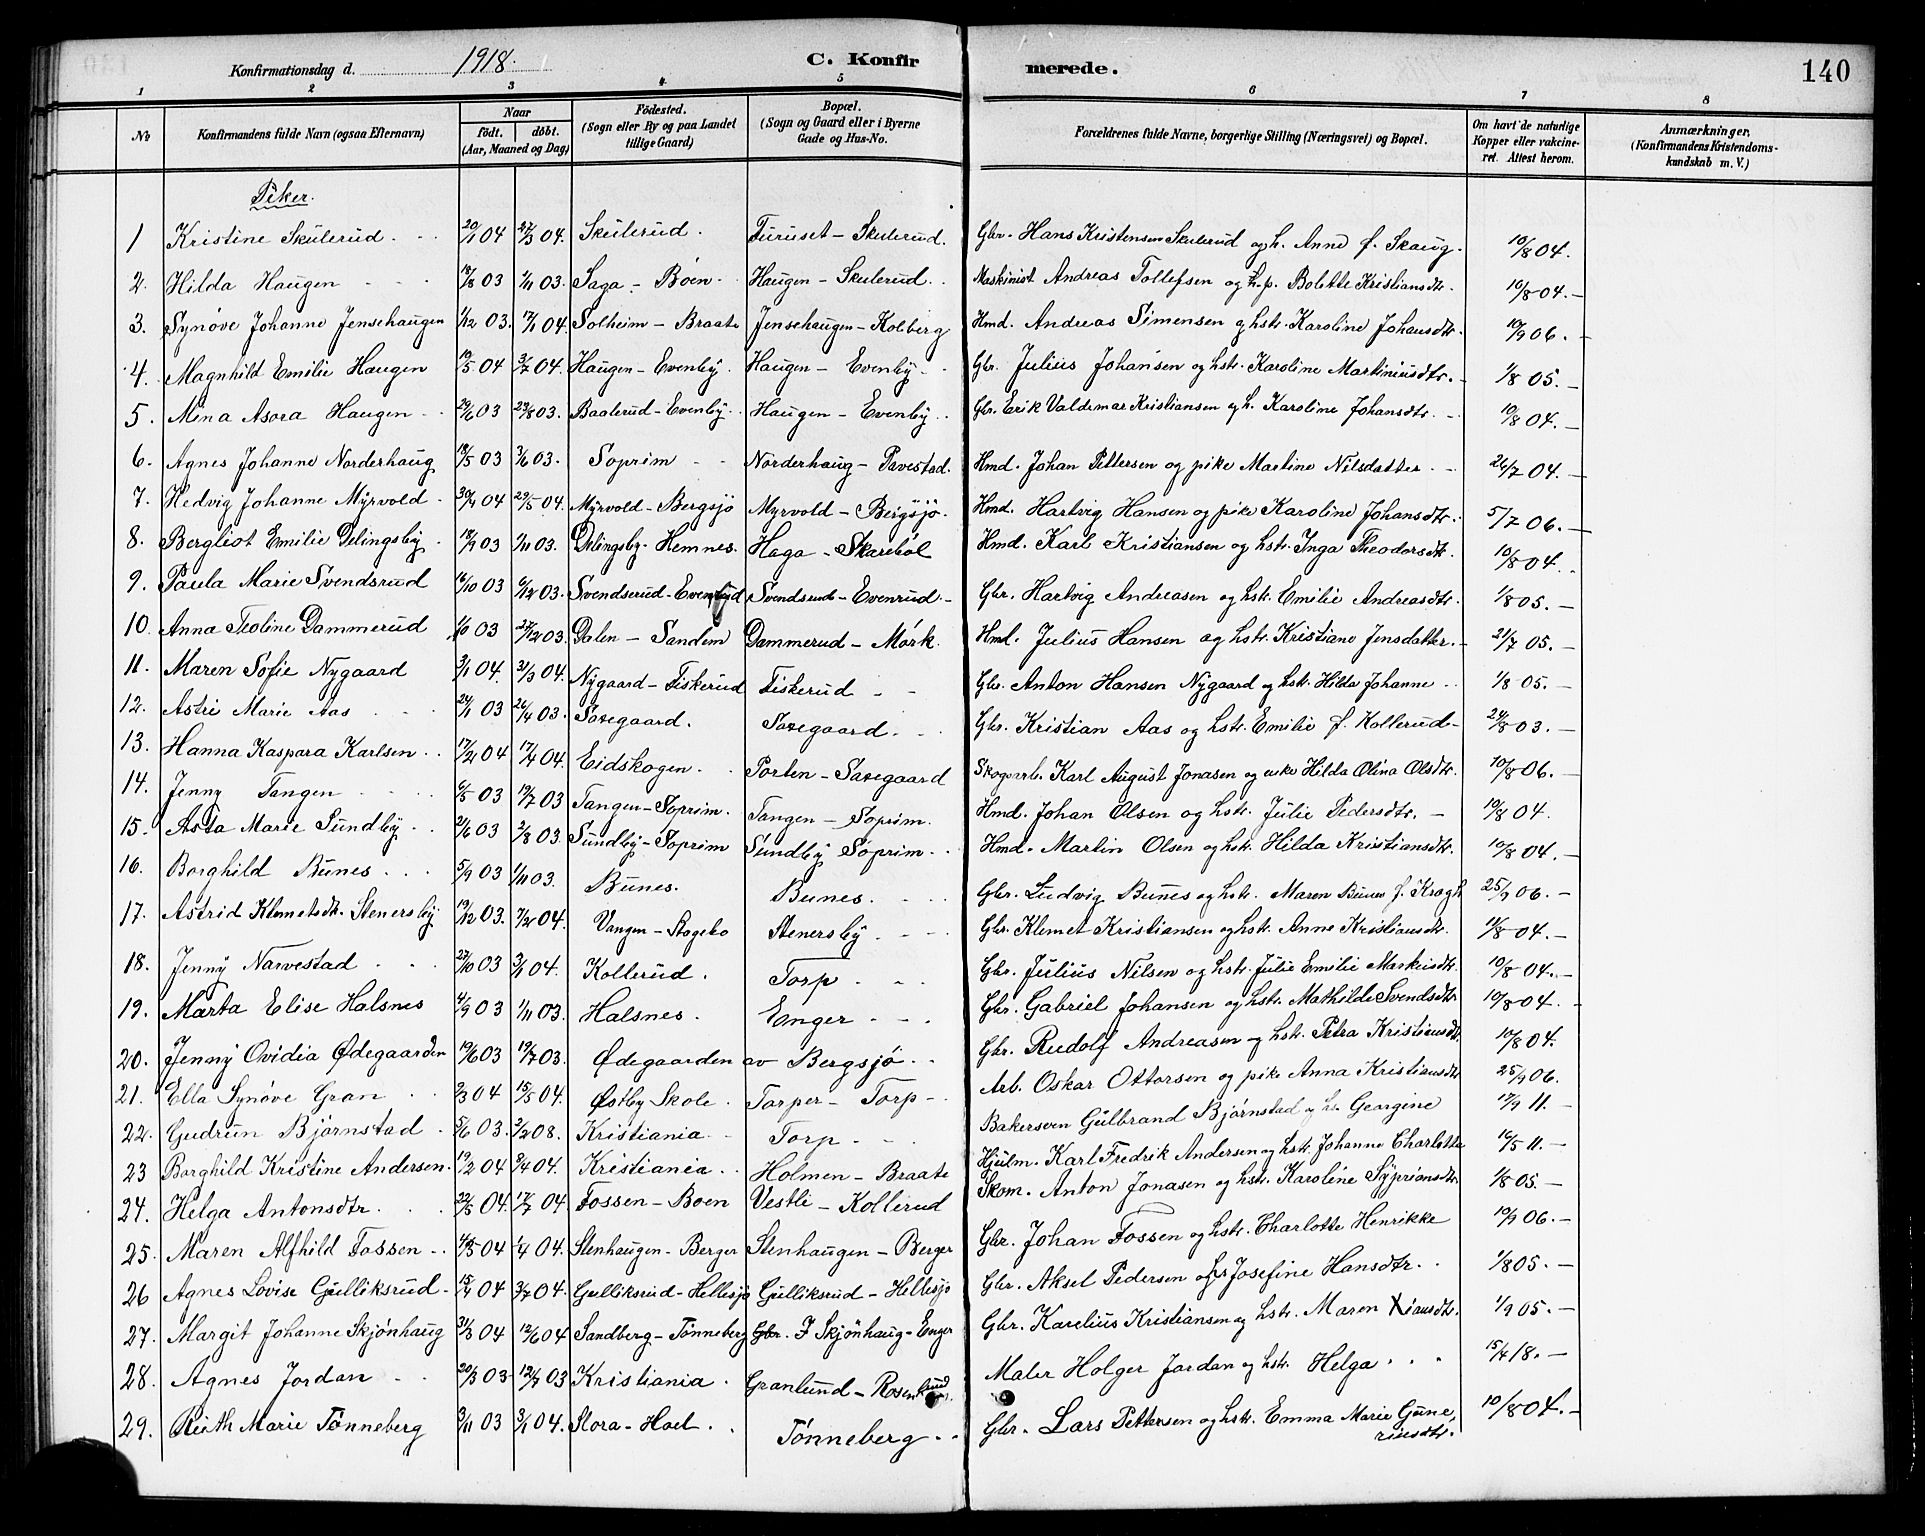 Konfirmationsdag d. 1918. C. Konfirmerede. 140
1 2 3 4 5 6 7 8
No Konfirmandens fulde Navn (ogsaa Efternavn) Naar født. døbt. (Aar, Maaned og Dag) Fødested. (Sogn eller By og paa Landet tillige Gaard) Bopæl. (Sogn og Gaard eller i Byerne Gade og Hus-No. Forældrenes fulde Navne, borgerlige Stilling (Næringsvei) og Bopæl. Om havt de naturlige Kopper eller vakcineret. Attest herom. Anmærkninger. (Konfirmandens Kristendomskundskab m. V.)
Piker.
1 Kristine Skulerud 20/1 04 27/3 04. Skulerud. Furuset - Skulerud. Gbr. Hans Kristensen Skulerud og h. Anne f. Skaug. 10/8 04.
2. Hilda Haugen 18/8 03 1/11 03. Saga - Böen Haugen - Skulerud. Maskinist Andreas Tollefsen og h.p. Bolette Kristiansdtr. 10/8 04.
3. Synöve Johanne Jensehaugen 1/12 03. 17/1 04. Solheim - Braate Jensehaugen - Kolberg Hmd. Andreas Simensen og hstr. Karoline Johansdtr. 10/9 06.
4. Magnhild Emilie Haugen 19/5 04 3/7 04. Haugen - Evenby. Haugen - Evenby. Gbr. Julius Johansen og hstr. Karoline Martiniusdtr. 1/8 05.
5. Mina Asora Haugen 29/6 03 23/8 03. Baalerud - Evenby. Haugen - Evenby. Gbr. Erik Valdemar Kristiansen og h. Karoline Johansdtr. 10/8 04.
6. Agnes Johanne Norderhaug 18/5 03 3/6 03. Soprim Norderhaug - Tavestad. Hmd. Johan Pettersen og pike Martine Nilsdatter. 26/7 04.
7. Hedvig Johanne Myrvold 30/4 04 29/5 04. Myrvold - Bergsjö Myrvold - Bergsjö. Hmd. Hartvig Hansen og pike Karoline Johansdtr. 5/7 06.
8. Bergliot Emilie Delingsby 18/9 03 1/11 03. Delingsby - Hemnes. Haga - Skareböl Hmd. Karl Kristiansen og hstr. Inga Theodorsdtr. 10/8 04.
9. Paula Marie Svendsrud 16/10 03 6/12 03. Svendserud - Evenrud Svendsrud - Evenrud. Gbr. Hartvig Andreasen og hstr. Emilie Andreasdtr. 1/8 05.
10. Anna Teoline Dammerud 1/10 03 27/12 03. Dalen - Sandem Dammerud - Mörk. Hmd. Julius Hansen og hstr. Kristiane Jensdatter. 21/7 05.
11. Maren Sofie Nygaard 3/1 04. 31/3 04. Nygaard - Fiskerud Fiskerud Gbr. Anton Hansen Nygaard og hstr. Hilda Johanne 1/8 05.
12. Astri Marie Aas 24/1 03 26/4 03. Saxegaard. Saxegaard. Gbr. Kristian Aas og hstr. Emilie f. Kollerud 24/8 03.
13. Hanna Kaspara Karlsen 17/2 04 17/4 04. Eidskogen. Porten - Saxegaard Skogsarb. Karl August Jonasen og enke Hilda Olina Olsdtr. 10/8 06.
14. Jenny Tangen 6/5 03 19/7 03 Tangen - Soprim. Tangen - Soprim. Hmd. Johan Olsen og hstr. Julie Pedersdtr. 10/8 04.
15. Asta Marie Sundby 21/6 03 2/8 03. Sundby - Soprim Sundby Soprim. Hmd. Martin Olsen og hstr. Hilda Kristiansdtr. 10/8 04.
16. Borghild Bunes 5/9 03 1/11 03. Bunes. Bunes. Gbr. Ludvig Bunes og hstr. Maren Bunes f. Krogh 25/9 06.
17. Astrid Klemetsdtr. Stenersby 19/12 03. 7/2 04. Vangen - Stogebo Stenersby Gbr. Klemet Kristiansen og hstr. Anne Kristiansdtr. 11/8 04.
18. Jenny Narvestad 27/10 03 3/1 04. Kollerud. Torp Gbr. Julius Nilsen og hstr. Julie Emilie Markusdtr. 10/8 04.
19. Marta Elise Halsnes 4/9 03 1/11 03. Halsnes. Enger Gbr. Gabriel Johansen og hstr. Mathilde Svendsdtr. 10/8 04.
20. Jenny Ovidia Ødegaarden 19/6 03 19/7 03. Ødegaarden av Bergsjö Gbr. Rudolf Andreasen og hstr. Petra Kristiansdtr. 10/8 04.
21. Ella Synöve Gran 2/3 04 15/5 04. Østby Skole. Torper - Torp Arb. Oskar Ottersen og pike Anna Kristiansdtr. 25/9 06.
22. Gudrun Björnstad 5/6 03. 2/2 08. Kristiania Torp Bakersven Gulbrand Björnstad og hs. Georgine 17/9 11.
23 Borghild Kristine Andersen. 19/2 04 3/4 04. Kristiania Holmen - Braate Hjulm. Karl Fredrik Andersen og hstr. Johanne Charlotte 16/5 11.
24. Helga Antonsdtr 22/5 04. 17/7 04 Fossen - Boen Vestli - Kollerud Skom. Anton Jonasen og hstr. Karoline Syprionsdtr. 1/8 05.
25. Maren Alfhild Fossen 4/3 04 1/4 04. Stenhaugen - Berger Stenhaugen - Berger Gbr. Johan Fossen og hstr. Charlotte Henrikke 10/9 06.
26 Agnes Lovise Gulliksrud 15/4 04 3/7 04. Gulliksrud - Hellesjö Gulliksrud - Hellesjö Gbr. Aksel Pedersen og hs Josefine Hansdtr. 1/8 05.
27. Margit Johanne Skjönhaug 31/3 04 12/6 04 Sandberg - Tönneberg Gbr. I Skjönhaug - Enger Gbr. Karelius Kristiansen og hstr. Maren Xiansdtr. 1/9 05.
28. Agnes Jordan 20/3 03 12/7 03 Kristiania Granlund - Rosenlund. Maler Holger Jordan og hstr. Helga 15/4 18.
29. Ruth Marie Tönneberg 3/11 03 3/1 04. Stora - Hoel Tönneberg Gbr. Lars Pettersen og hstr. Emma Marie Guneriusdtr. 10/8 04.